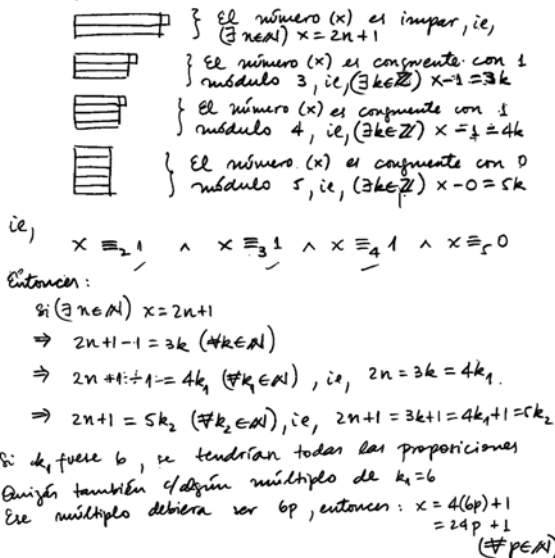 El número (x) es impar, ie,
(∃ n∈ℕ) x = 2n+1
El número (x) es congruente con 1
módulo 3, ie, (∃k∈ℤ) x-1 = 3k
El número (x) es congruente con 1
módulo 4, ie, (∃k∈ℤ) x - 1 = 4k
El número (x) es congruente con 0
módulo 5, ie, (∃k∈ℤ) x - 0 = 5k
ie,
x ≡₂ 1 ∧ x ≡₃ 1 ∧ x ≡₄ 1 ∧ x ≡₅ 0
Entonces:
Si (∃ n∈ℕ) x = 2n+1
⇒ 2n+1-1 = 3k (∀k∈ℕ)
⇒ 2n+1-1 = 4k₁ (∀k₁∈ℕ), ie, 2n = 3k = 4k₁.
⇒ 2n+1 = 5k₂ (∀k₂∈ℕ), ie, 2n+1 = 3k+1 = 4k₁+1 = 5k₂
Si k₁ fuese 6, se tendrían todas las proposiciones
Quizás también c/algún múltiplo de k₁=6
Ese múltiplo debiera ser 6p, entonces: x = 4(6p)+1
= 24p + 1
(∀ p∈ℕ)